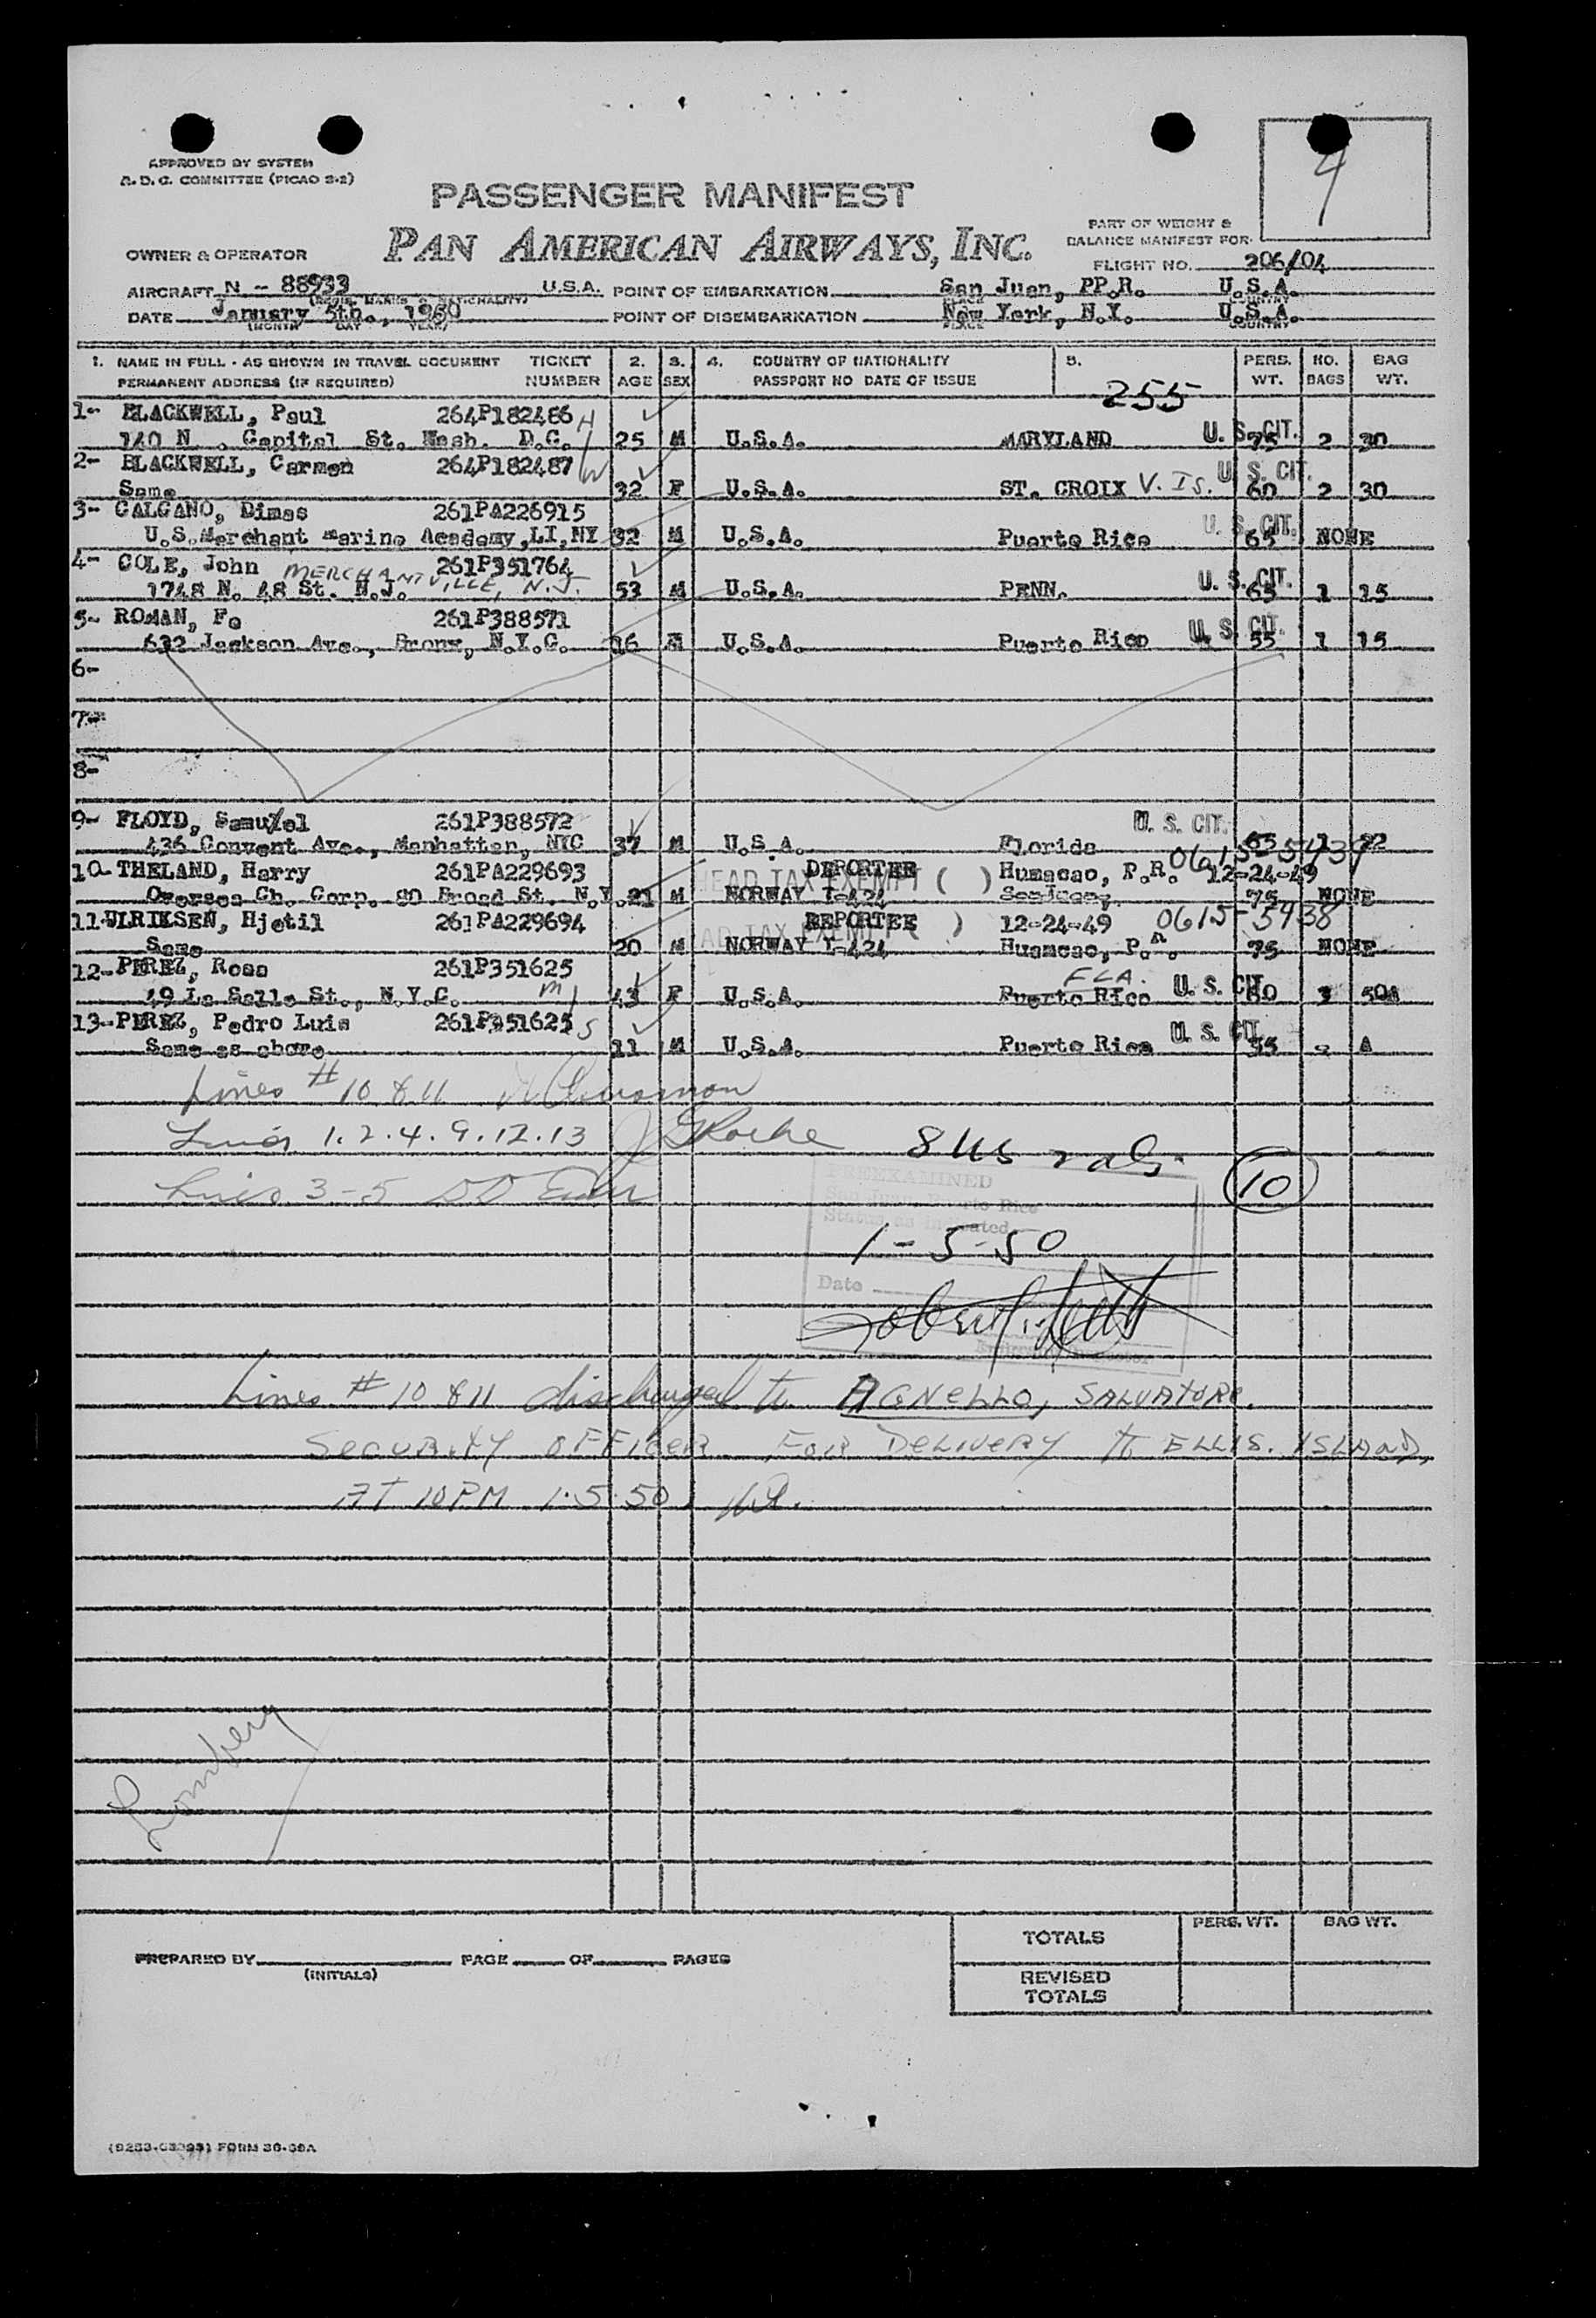 4
APPROVED BY SYSTEM
A. D. C. COMMITTEE (PICAO S-2)
PASSENGER MANIFEST
PAN AMERICAN AIRWAYS, INC.
PART OF WEIGHT &
BALANCE MANIFEST FOR
OWNER & OPERATOR
FLIGHT NO. 206/04
AIRCRAFT N - 88933 U.S.A. POINT OF EMBARKATION San Juan, PP.R. U.S.A.
DATE January 5th., 1950 POINT OF DISEMBARKATION New York, N.Y. U.S.A.
(MONTH DAY YEAR) PLACE COUNTRY
1. NAME IN FULL - AS SHOWN IN TRAVEL DOCUMENT TICKET 2. 3. 4. COUNTRY OF NATIONALITY 5. PERS. NO. BAG
PERMANENT ADDRESS (IF REQUIRED) NUMBER AGE SEX PASSPORT NO DATE OF ISSUE WT. BAGS WT.
255
1- BLACKWELL, Paul 264P182486 H
140 N . Capital St. Wash. D.C. 25 M U.S.A. MARYLAND U. S. CIT. 75 2 30
2- BLACKWELL, Carmen 264P182487 W
Same 32 F U.S.A. ST. CROIX V. Is. U. S. CIT. 60 2 30
3- CALCANO, Dimas 261PA226915
U.S.Merchant Marine Academy,LI,NY 32 M U.S.A. Puerto Rico U. S. CIT. 65 NONE
4- COLE, John 261P351764
MERCHANTVILLE, N.J.
1748 N. 48 St. N.J. 53 M U.S.A. PENN. U. S. CIT. 65 1 15
5- ROMAN, Fe 261P388571
632 Jackson Ave., Bronx, N.Y.C. 16 U.S.A. Puerto Rico U. S. CIT. 55 1 15
6-
7-
8-
9- FLOYD, Samuel 261P388572 U. S. CIT.
436 Convent Ave., Manhattan, NYC 37 M U.S.A. Florida 65 1 22
10- THELAND, Harry 261PA229693 DEPORTEE Humacao, P.R. 12-24-49
HEAD TAX EXEMPT ( )
Oversea Ch. Corp. 80 Broad St. N.Y. 21 M NORWAY I-424 75 NONE
11- ULRIKSEN, Hjetil 261PA229694 DEPORTEE 12-24-49 0615-5938
HEAD TAX EXEMPT ( )
Same 20 M NORWAY I-424 Humacao, P.R. 75 NONE
12- PEREZ, Rosa 261P351625 FLA.
49 La Salle St., N.Y.C. m 43 F U.S.A. Puerto Rico U. S. CIT. 60 3 50A
13- PEREZ, Pedro Luis 261P351625 S
Same as above 11 M U.S.A. Puerto Rico U. S. CIT. 55 - A
Lines # 10 & 11
Lines 1.2.4.9.12.13 8 US 2 als. 10
Lines 3-5
PREEXAMINED
San Juan, Puerto Rico
Status as indicated
1-5-50
Date
Lines # 10 & 11 discharged to AGNELLO, SALVATORE,
SECURITY OFFICER FOR DELIVERY to ELLIS. ISLAND,
AT 10 PM 1.5.50
PREPARED BY PAGE OF PAGES
(INITIALS)
PERS. WT. BAG WT.
TOTALS
REVISED
TOTALS